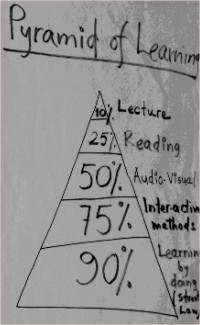 Pyramid of Learning
10% Lecture
25% Reading
50% Audio-Visual
75% Inter-active
methods
90% Learning
by
doing
(street
Law)